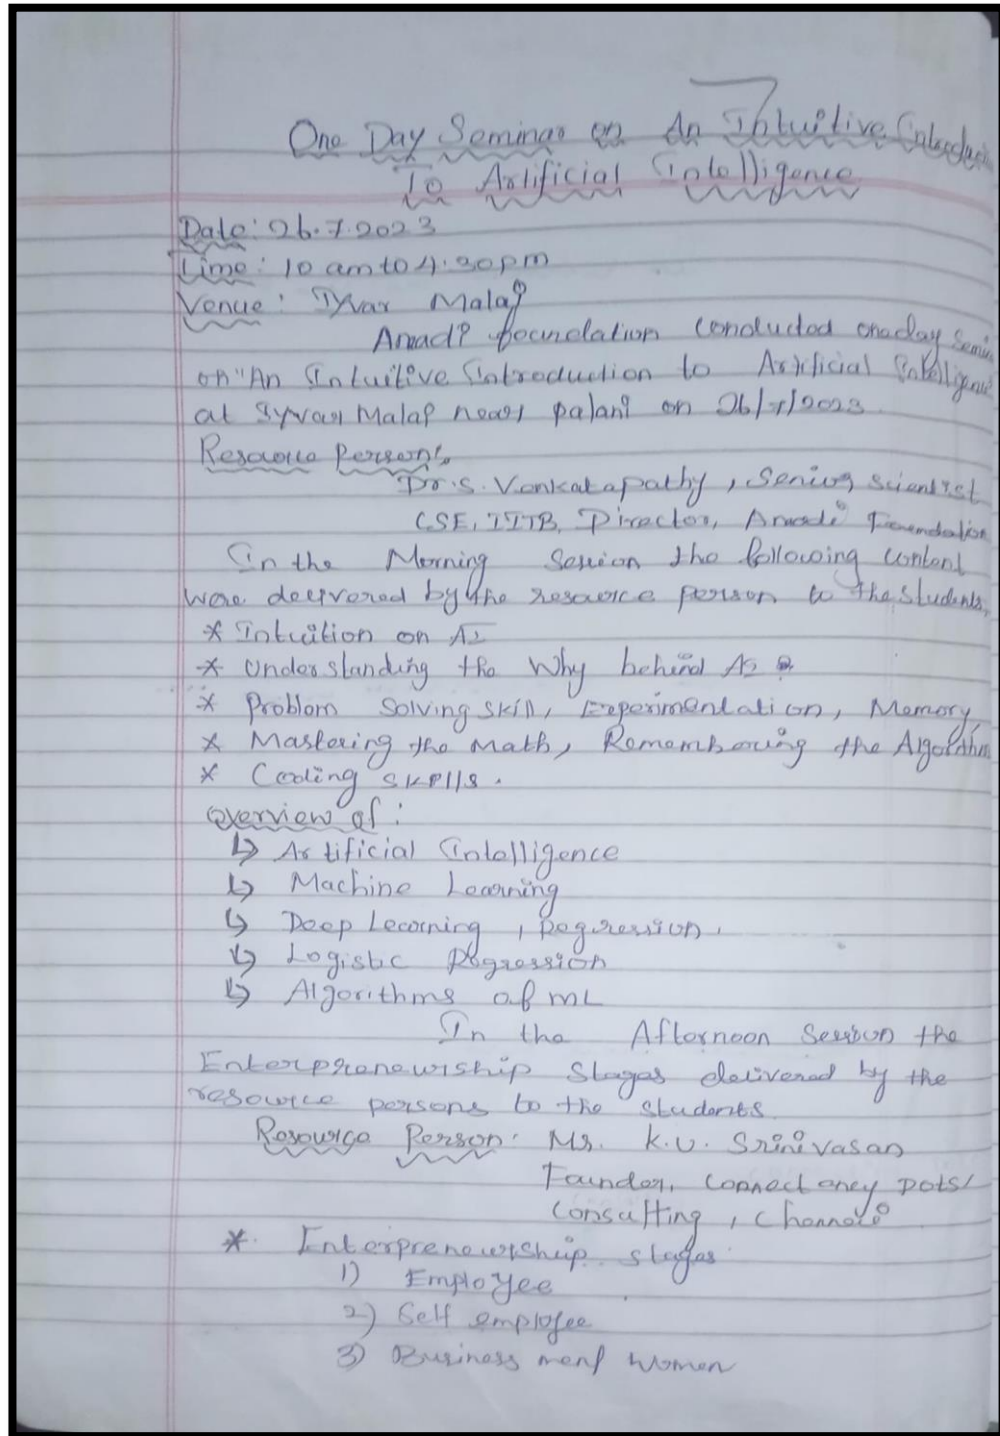 One Day Seminar on An Intuitive Introduction
To Artificial Intelligence
Date: 26.7.2023
Time: 10 am to 4.30pm
Venue: Iyvar Malai
Anadi foundation conducted oneday Semin
on "An Intuitive Introduction to Artificial Intelligence
at Iyvar Malai near palani on 26/7/2023.
Resource Person:
Dr. S. Venkatapathy, Senior scientist
CSE, IIITB, Director, Anadi Foundation
In the Morning Session the following content
were delivered by the resource person to the students.
* Intuition on AI
* Understanding the Why behind AI
* Problem Solving skill, Experimentation, Memory,
* Mastering the Math, Remembering the Algorithm
* Coding skills.
Overview of:
↳ Artificial Intelligence
↳ Machine Learning
↳ Deep Learning, Regression,
↳ Logistic Regression
↳ Algorithms of ML
In the Afternoon Session the
Enterpreneurship Stages delivered by the
resource persons to the students.
Resource Person: Mr. K.V. Srinivasan
Founder, Connect Dots/
Consulting, Chennai
* Enterpreneurship stages:
1) Employee
2) Self employee
3) Business men/ women